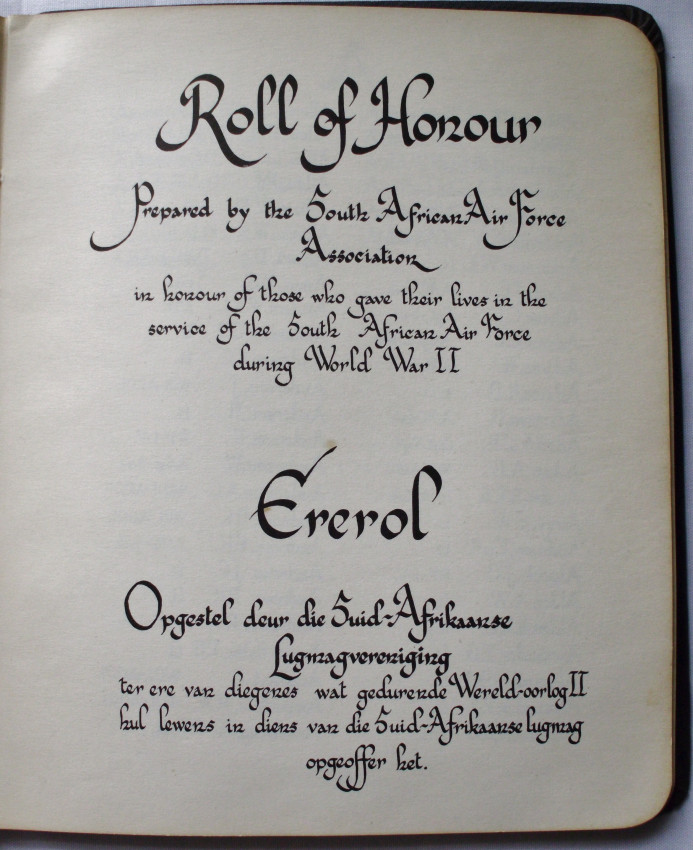 Roll of Honour
Prepared by the South African Air Force
Association
in honour of those who gave their lives in the
service of the South African Air Force
during World War II
Ererol
Opgestel deur die Suid-Afrikaanse
Lugmagvereniging
ter ere van diegenes wat gedurende Wereld-oorlog II
hul lewens in diens van die Suid-Afrikaanse lugmag
opgeoffer het.